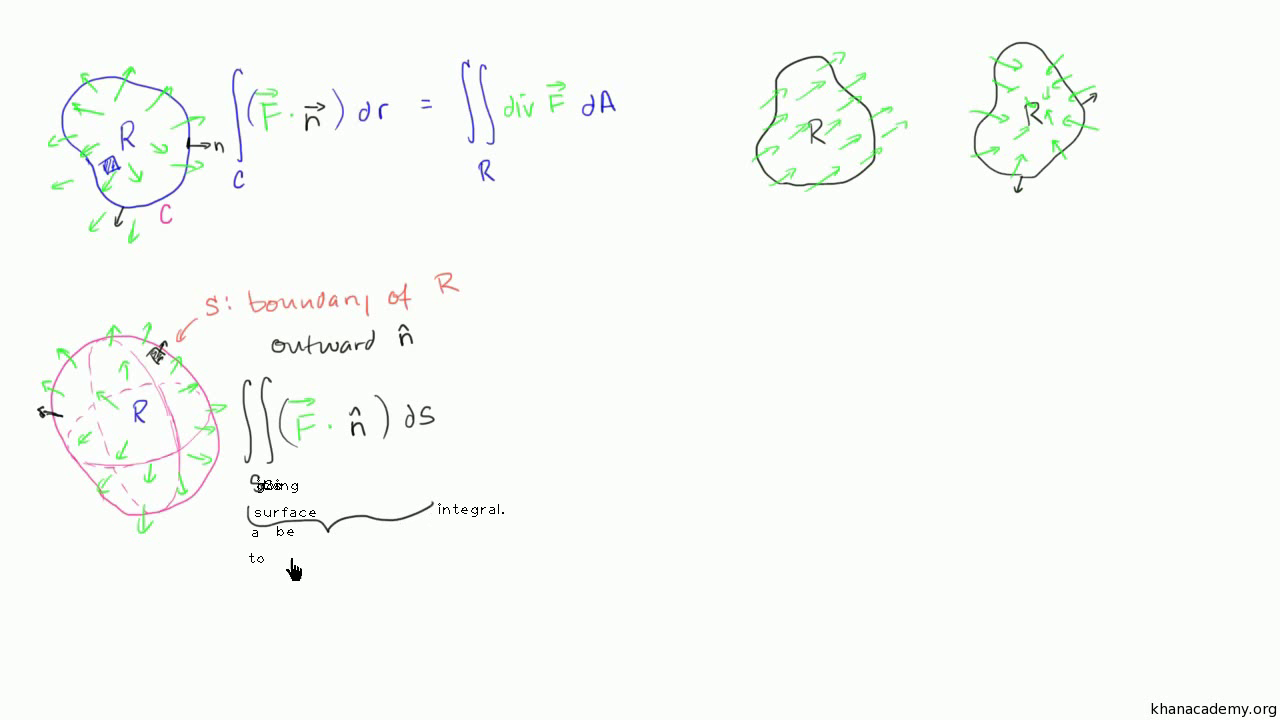 R
n
C
∫ (F⃗ · n⃗) dr = ∬ div F⃗ dA
C R
R
R
S: boundary of R
outward n̂
R
∬ (F⃗ · n̂) dS
S going
surface integral.
a be
to
khanacademy.org